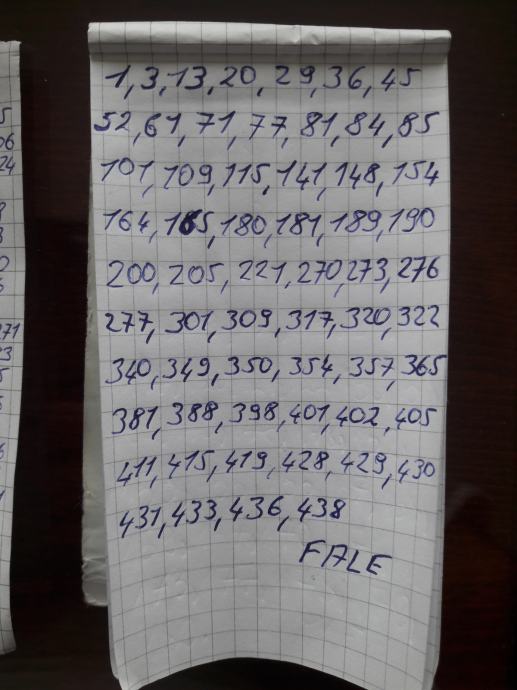 1, 3, 13, 20, 29, 36, 45
52, 61, 71, 77, 81, 84, 85
101, 109, 115, 141, 148, 154
164, 165, 180, 181, 189, 190
200, 205, 221, 270, 273, 276
277, 301, 309, 317, 320, 322
340, 349, 350, 354, 357, 365
381, 388, 398, 401, 402, 405
411, 415, 419, 428, 429, 430
431, 433, 436, 438
FALE